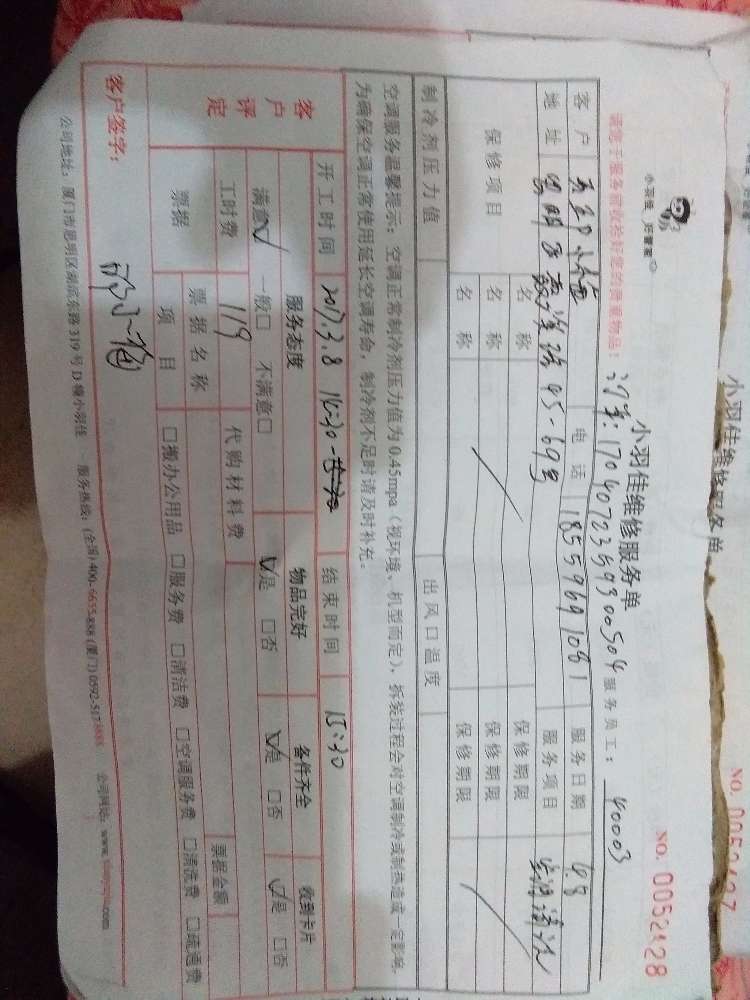 小羽佳维修服务单
NO. 0052427
小羽佳 好管家
小羽佳维修服务单
NO. 0052428
请您于服务前收拾好您的贵重物品！
订单：1704072359300504
服务员工：
40003
客户
电话
18559691081
服务日期
地址
思明区
45-69号
服务项目
空调清洗
保修项目
名称
保修期限
名称
保修期限
名称
保修期限
制冷剂压力值
出风口温度
空调服务温馨提示：空调正常制冷剂压力值为0.45mpa（视环境、机型而定），拆装过程会对空调制冷或制热造成一定影响，
为确保空调正常使用延长空调寿命，制冷剂不足时请及时补充。
客户评定
开工时间
2017.3.8
14:30
结束时间
15:30
服务态度
物品完好
备件齐全
收到卡片
满意☑ 一般□ 不满意□
☑是 □否
☑是 □否
☑是 □否
工时费
119
代购材料费
票据
票据名称
票据金额
项目
□搬办公用品 □服务费 □清洁费 □空调服务费 □清洗费 □疏通费
客户签字：
公司地址：厦门市思明区湖滨东路319号D幢小羽佳
服务热线：(全国)400-6655-888 (厦门)0592-5178888
公司网站：www.
.com